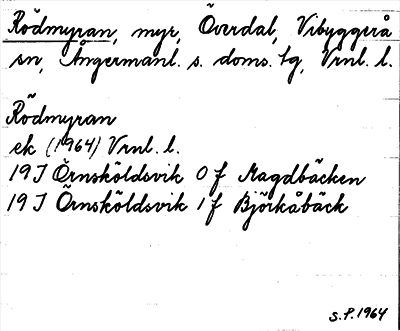 Rödmyran, myr, Överdal, Vibyggerå
sn, Ångermanl. s. doms. tg, Vrnl. l.
Rödmyran
ek (1964) Vrnl. l.
19 J Örnsköldsvik 0 f Magdbäcken
19 J Örnsköldsvik 1 f Björkåbäck
S.P. 1964